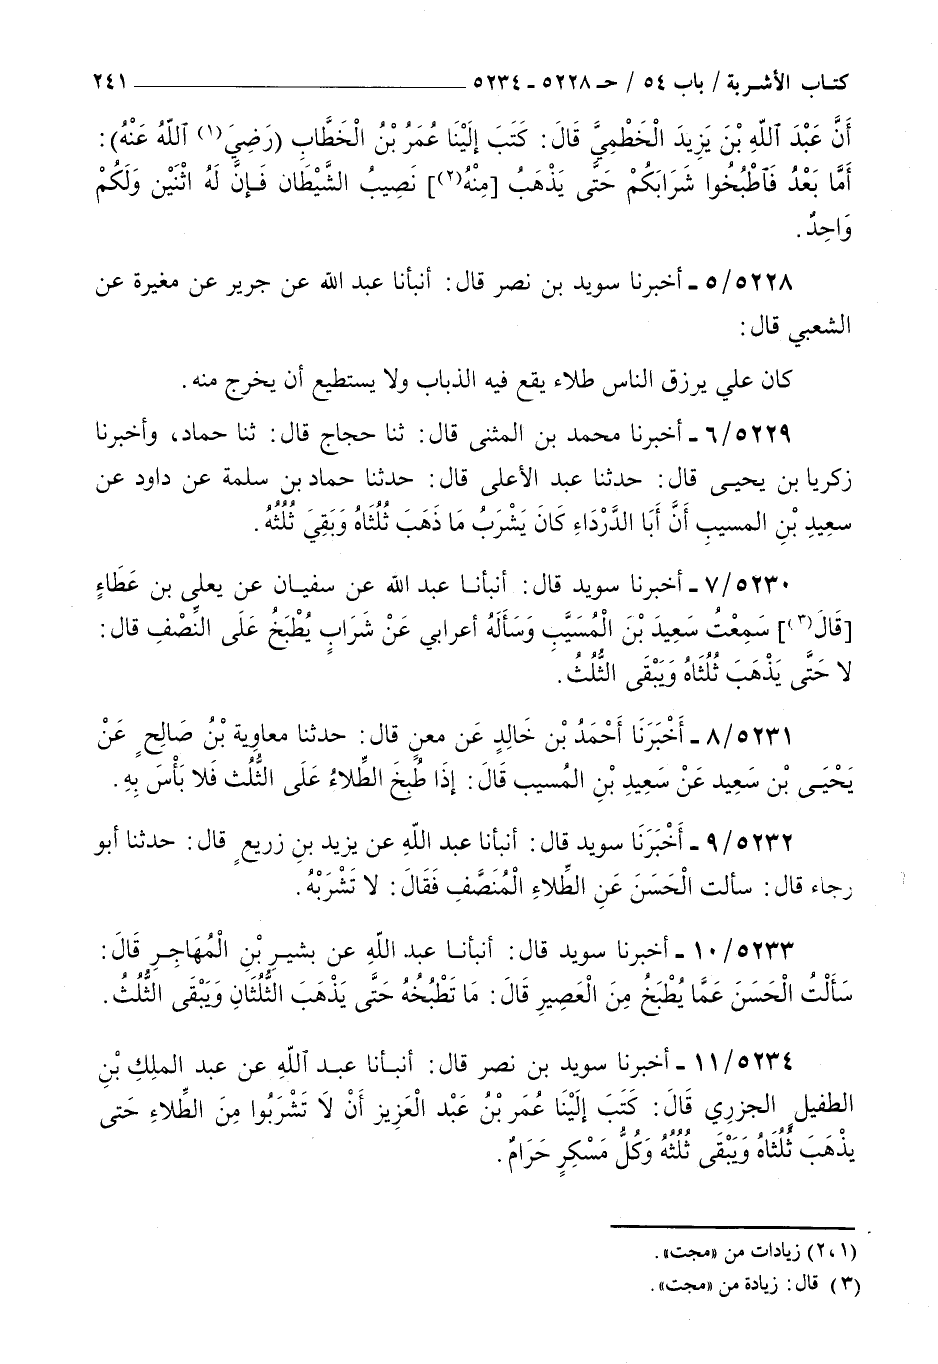 كتاب الأشربة / باب ٥٤ / حـ ٥٢٢٨ - ٥٢٣٤ ٢٤١
أَنَّ عَبْدَ ٱللّهِ بْنَ يَزِيدَ الْخَطْمِيَّ قَالَ: كَتَبَ إِلَيْنَا عُمَرُ بْنُ الْخَطَّابِ (رَضِيَ(١) ٱللّهُ عَنْهُ):
أَمَّا بَعْدُ فَٱطْبُخُوا شَرَابَكُمْ حَتَّى يَذْهَبُ [مِنْهُ(٢)] نَصِيبُ الشَّيْطَان فَإِنَّ لَهُ اثْنَيْنِ وَلَكُمْ
وَاحِدٌ.
٥/٥٢٢٨ - أخبرنا سويد بن نصر قال: أنبأنا عبد الله عن جرير عن مغيرة عن
الشعبي قال:
كان علي يرزق الناس طلاء يقع فيه الذباب ولا يستطيع أن يخرج منه.
٦/٥٢٢٩ - أخبرنا محمد بن المثنى قال: ثنا حجاج قال: ثنا حماد، وأخبرنا
زكريا بن يحيى قال: حدثنا عبد الأعلى قال: حدثنا حماد بن سلمة عن داود عن
سعِيدِ بْنِ المسيبِ أَنَّ أَبَا الدَّرْدَاءِ كَانَ يَشْرَبُ مَا ذَهَبَ ثُلُثَاهُ وَبَقِيَ ثُلُثُهُ.
٧/٥٢٣٠ - أخبرنا سويد قال: أنبأنا عبد الله عن سفيان عن يعلى بن عَطَاءٍ
[قَالَ(٣)] سَمِعْتُ سَعِيدَ بْنَ الْمُسَيَّبِ وَسَأَلَهُ أعرابي عَنْ شَرَابٍ يُطْبَخُ عَلَى النِّصْفِ قال:
لا حَتَّى يَذْهَبَ ثُلُثَاهُ وَيَبْقَى الثُّلُثُ.
٨/٥٢٣١ - أَخْبَرَنَا أَحْمَدُ بْن خَالِدٍ عَن معنٍ قال: حدثنا معاوية بْنُ صَالِحٍ عَنْ
يَحْيَى بْن سَعِيد عَنْ سَعِيدِ بْنِ المُسيب قَالَ: إِذَا طُبِخَ الطِّلاءُ عَلَى الثُّلُث فَلا بَأْسَ بِهِ.
٩/٥٢٣٢ - أَخْبَرَنَا سويد قال: أنبأنا عبد اللّهِ عن يزيد بنِ زريعٍ قال: حدثنا أبو
رجاء قال: سألت الْحَسَنَ عَنِ الطِّلاءِ الْمُنَصَّفِ فَقَالَ: لا تَشْرَبْهُ.
١٠/٥٢٣٣ - أخبرنا سويد قال: أنبأنا عبد اللّهِ عن بشيرِ بْنِ الْمُهَاجِرِ قَالَ:
سَأَلْتُ الْحَسَنَ عَمَّا يُطْبَخُ مِنَ الْعَصِيرِ قَالَ: مَا تَطْبُخُهُ حَتَّى يَذْهَبَ الثُّلُثَانِ وَيَبْقَى الثُّلُثُ.
١١/٥٢٣٤ - أخبرنا سويد بن نصر قال: أنبأنا عبد ٱللّهِ عن عبد الملِكِ بْنِ
الطفيلِ الجزري قَالَ: كَتَبَ إِلَيْنَا عُمَر بْنُ عَبْد الْعَزِيز أَنْ لَا تَشْرَبُوا مِنَ الطِّلاءِ حَتى
يذْهَبَ ثُلُثَاهُ وَيَبْقَى ثُلُثُهُ وَكُلُّ مَسْكِرٍ حَرَامٌ.
(١، ٢) زيادات من «مجت».
(٣) قال: زيادة من «مجت».